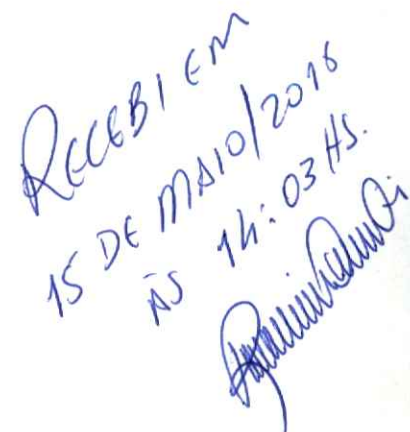 RECEBI EM
15 DE MAIO/2016
ÀS 14:03 HS.